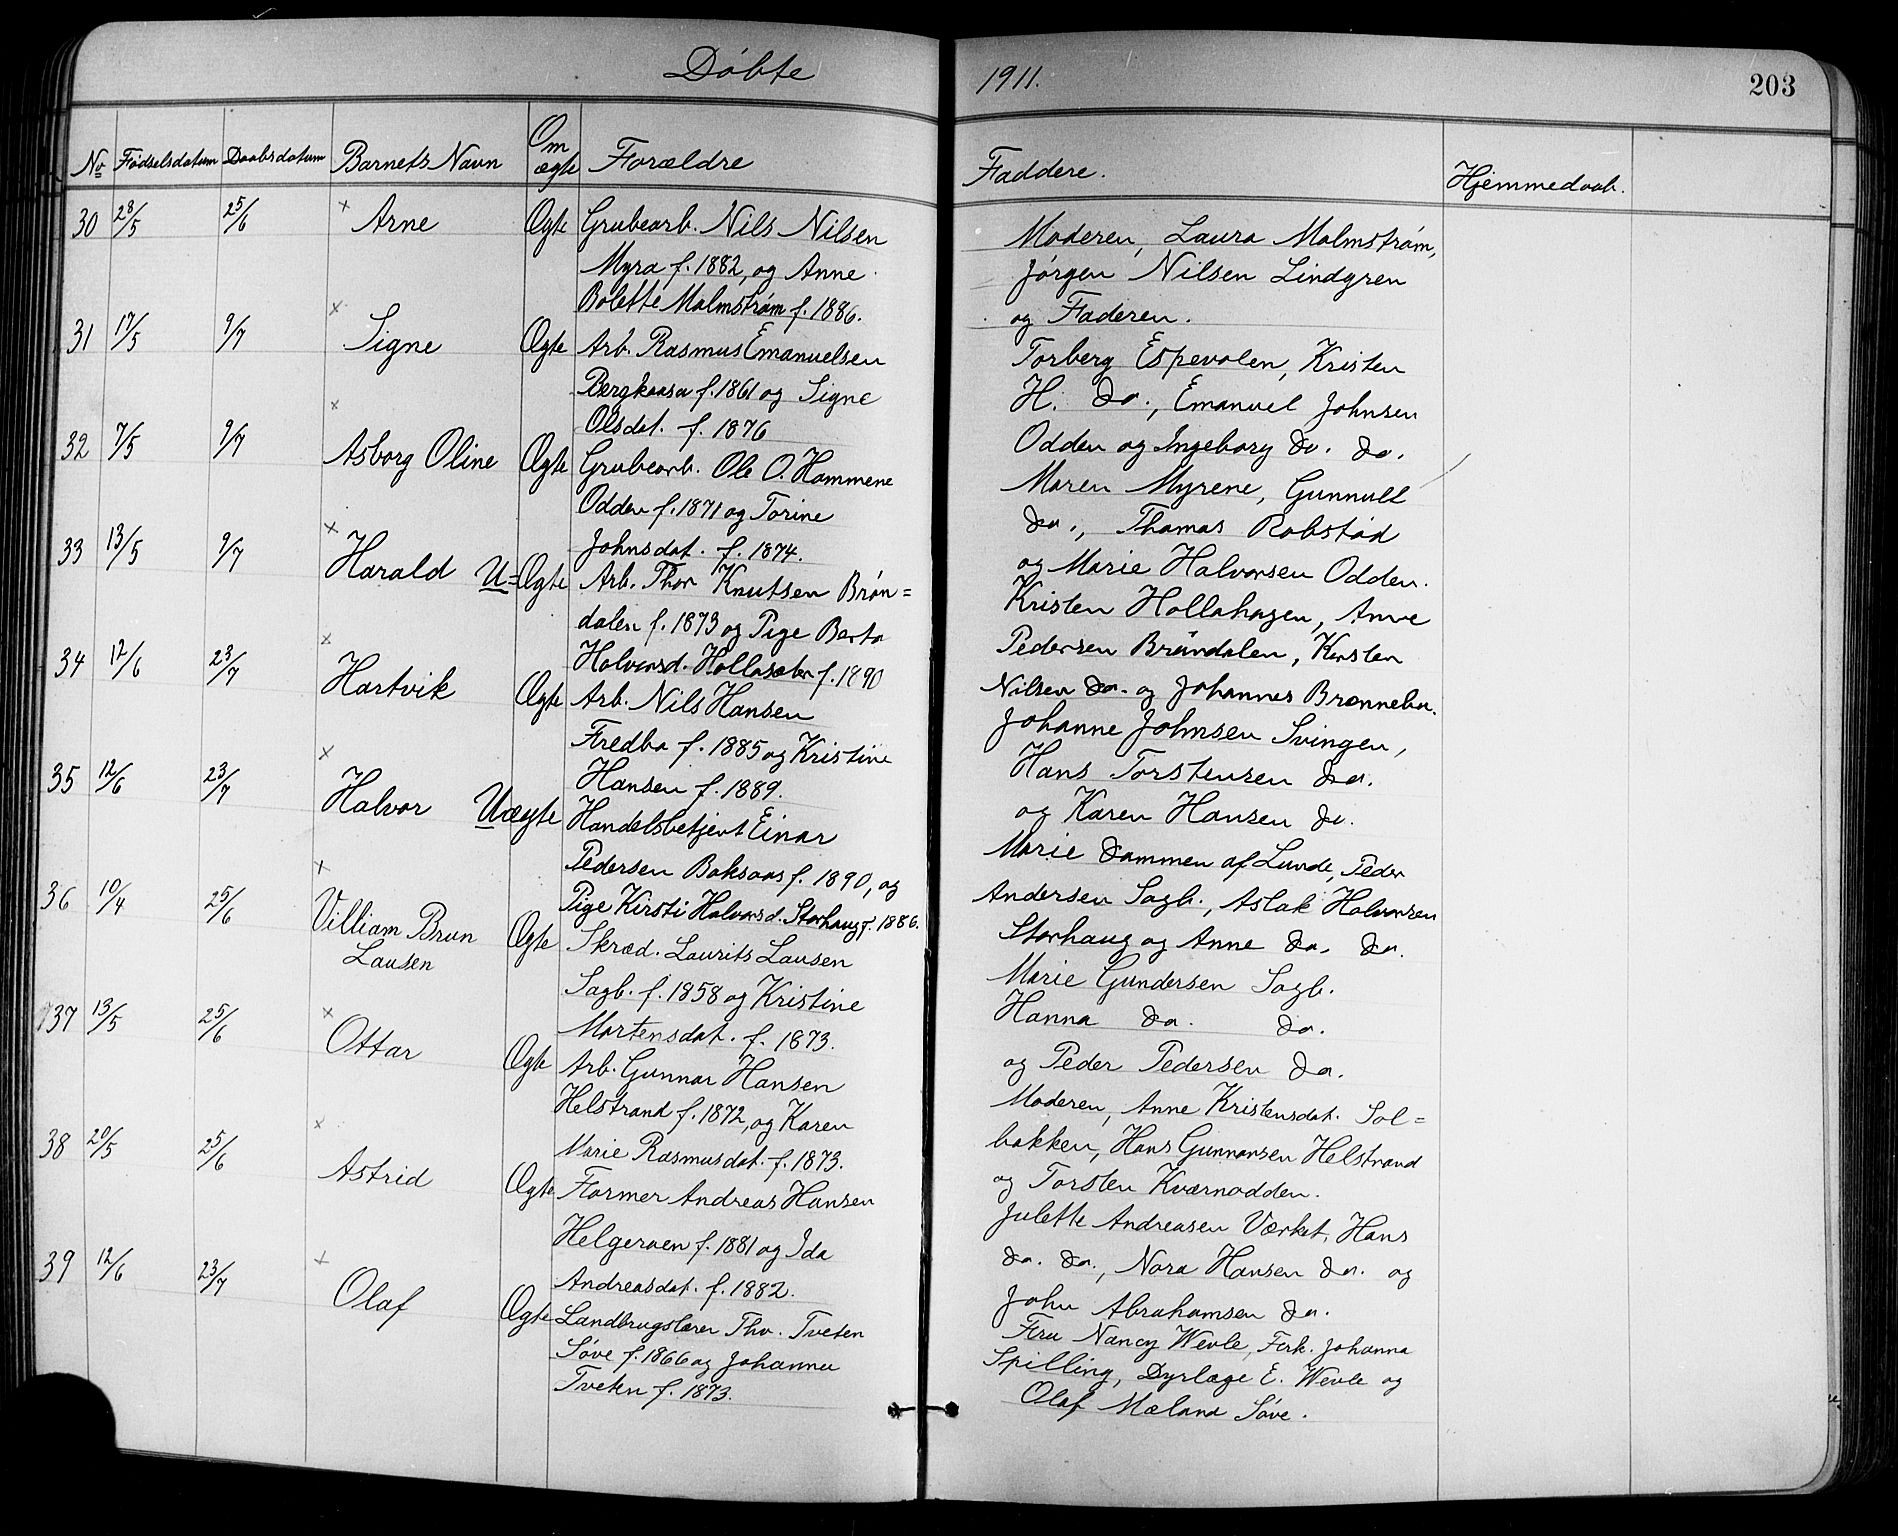 Döbte
1911.
203
No Fødselsdatum Daabsdatum Barnets Navn Om ægte Forældre
Faddere.
Hjemmedaab.
30 28/5 25/6 Arne Ægte Grubearb. Nils Nilsen
Myra f. 1882, og Anne
Bolette Malmstrøm f. 1886.
Moderen, Laura Malmstrøm,
Jørgen Nilsen Lindgren
og Faderen.
31 17/5 9/7 Signe Ægte Arb. Rasmus Emanuelsen
Bergkaasa f. 1861 og Signe
Olsdat. f. 1876
Torberg Espevalen, Kristen
H. do., Emanuel Johnsen
Odden og Ingeborg do. do.
32 7/5 9/7 Asborg Oline Ægte Grubearb. Ole O. Hammene
Odden f. 1871 og Torine
Johnsdat. f. 1874.
Maren Myrene, Gunnult
do., Thomas Robstad
og Marie Halvorsen Odden.
33 13/5 9/7 Harald U=Ægte Arb. Thor Knutsen Brøn=
dalen f. 1873 og Pige Berta
Halvorsd. Hollasæter f. 1890
Kristen Hollahagen, Anne
Pedersen Brøndalen, Kirsten
Nilsen do. og Johannes Brenneba.
34 12/6 23/7 Hartvik Ægte Arb. Nils Hansen
Fredbo f. 1885 og Kristine
Hansen f. 1889.
Johanne Johnsen Svingen,
Hans Torstensen do.
og Karen Hansen do.
35 12/6 23/7 Halvor Uægte Handelsbetjent Einar
Pedersen Boksaas f. 1890, og
Pige Kirsti Halvorsd. Storhaug f. 1886.
Marie Dammen af Lunde, Peder
Andersen Sagb., Aslak Halvorsen
Storhaug og Anne do. do.
36 10/4 25/6 Villiam Brun
Lausen Ægte Skræd. Laurits Lausen
Sagb. f. 1858 og Kristine
Mortensdat. f. 1873.
Marie Gundersen Sagb.
Hanna do. do.
og Peder Pedersen do.
37 13/5 25/6 Ottar Ægte Arb. Gunnar Hansen
Helstrand f. 1872, og Karen
Marie Rasmusdat. f. 1873.
Moderen, Anne Kristensdat. Sol=
bakken, Hans Gunnarsen Helstrand
og Torsten Kværnodden.
38 20/5 25/6 Astrid Ægte Former Andreas Hansen
Helgeroen f. 1881 og Ida
Andreasdat. f. 1882.
Julette Andreasen Værket, Hans
do. do., Nora Hansen do. og
John Abrahamsen do.
39 12/6 23/7 Olaf Ægte Landbrugslærer Thv. Tveten
Søve f. 1866 og Johanna
Tveten f. 1873.
Fru Nancy Wevle, Frk. Johanna
Spilling, Dyrlæge E. Wevle og
Olaf Mæland Søve.